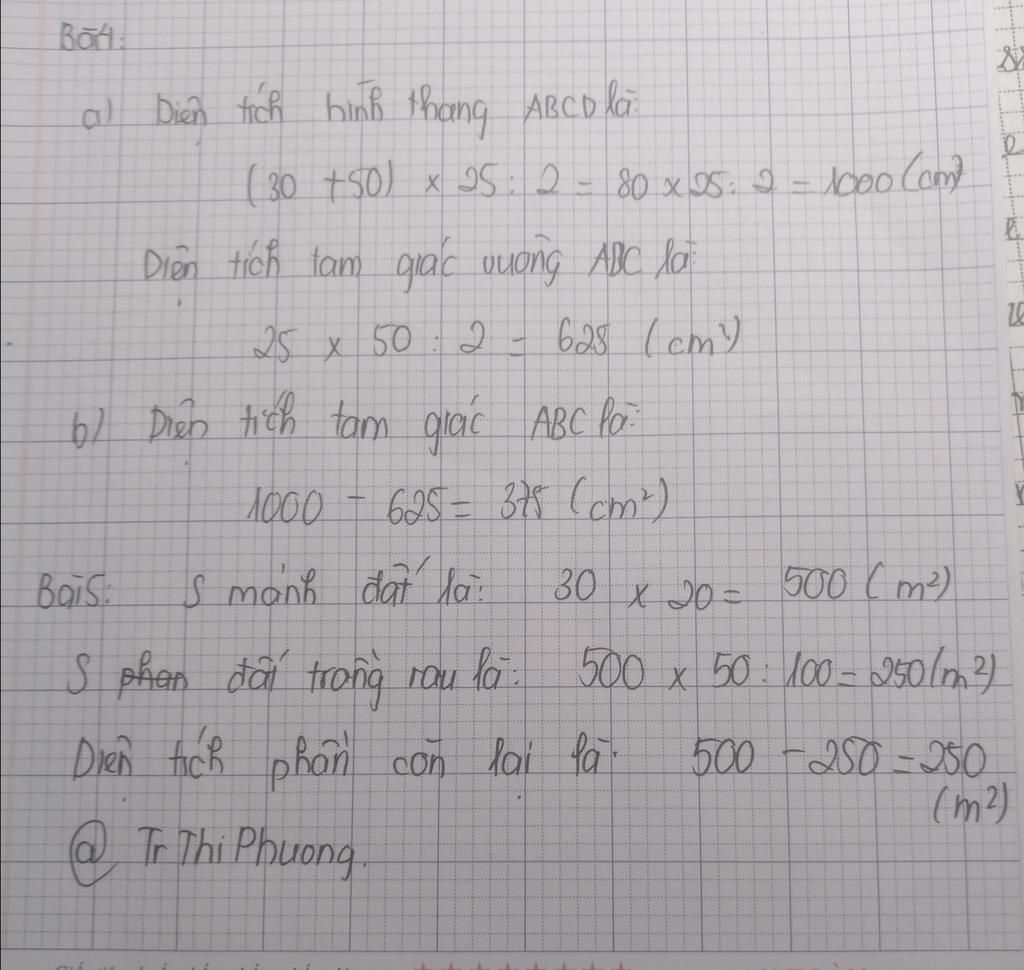 Bài 4:
a) Diện tích hình thang ABCD là:
(30 + 50) x 25 : 2 = 80 x 25 : 2 = 1000 (cm²)
Diện tích tam giác vuông ABC là:
25 x 50 : 2 = 625 (cm²)
b) Diện tích tam giác ABC là:
1000 - 625 = 375 (cm²)
Bài 5: S mảnh đất là: 30 x 20 = 500 (m²)
S phần đất trồng rau là: 500 x 50 : 100 = 250 (m²)
Diện tích phần còn lại là: 500 - 250 = 250
(m²)
@ Tr Thi Phuong.